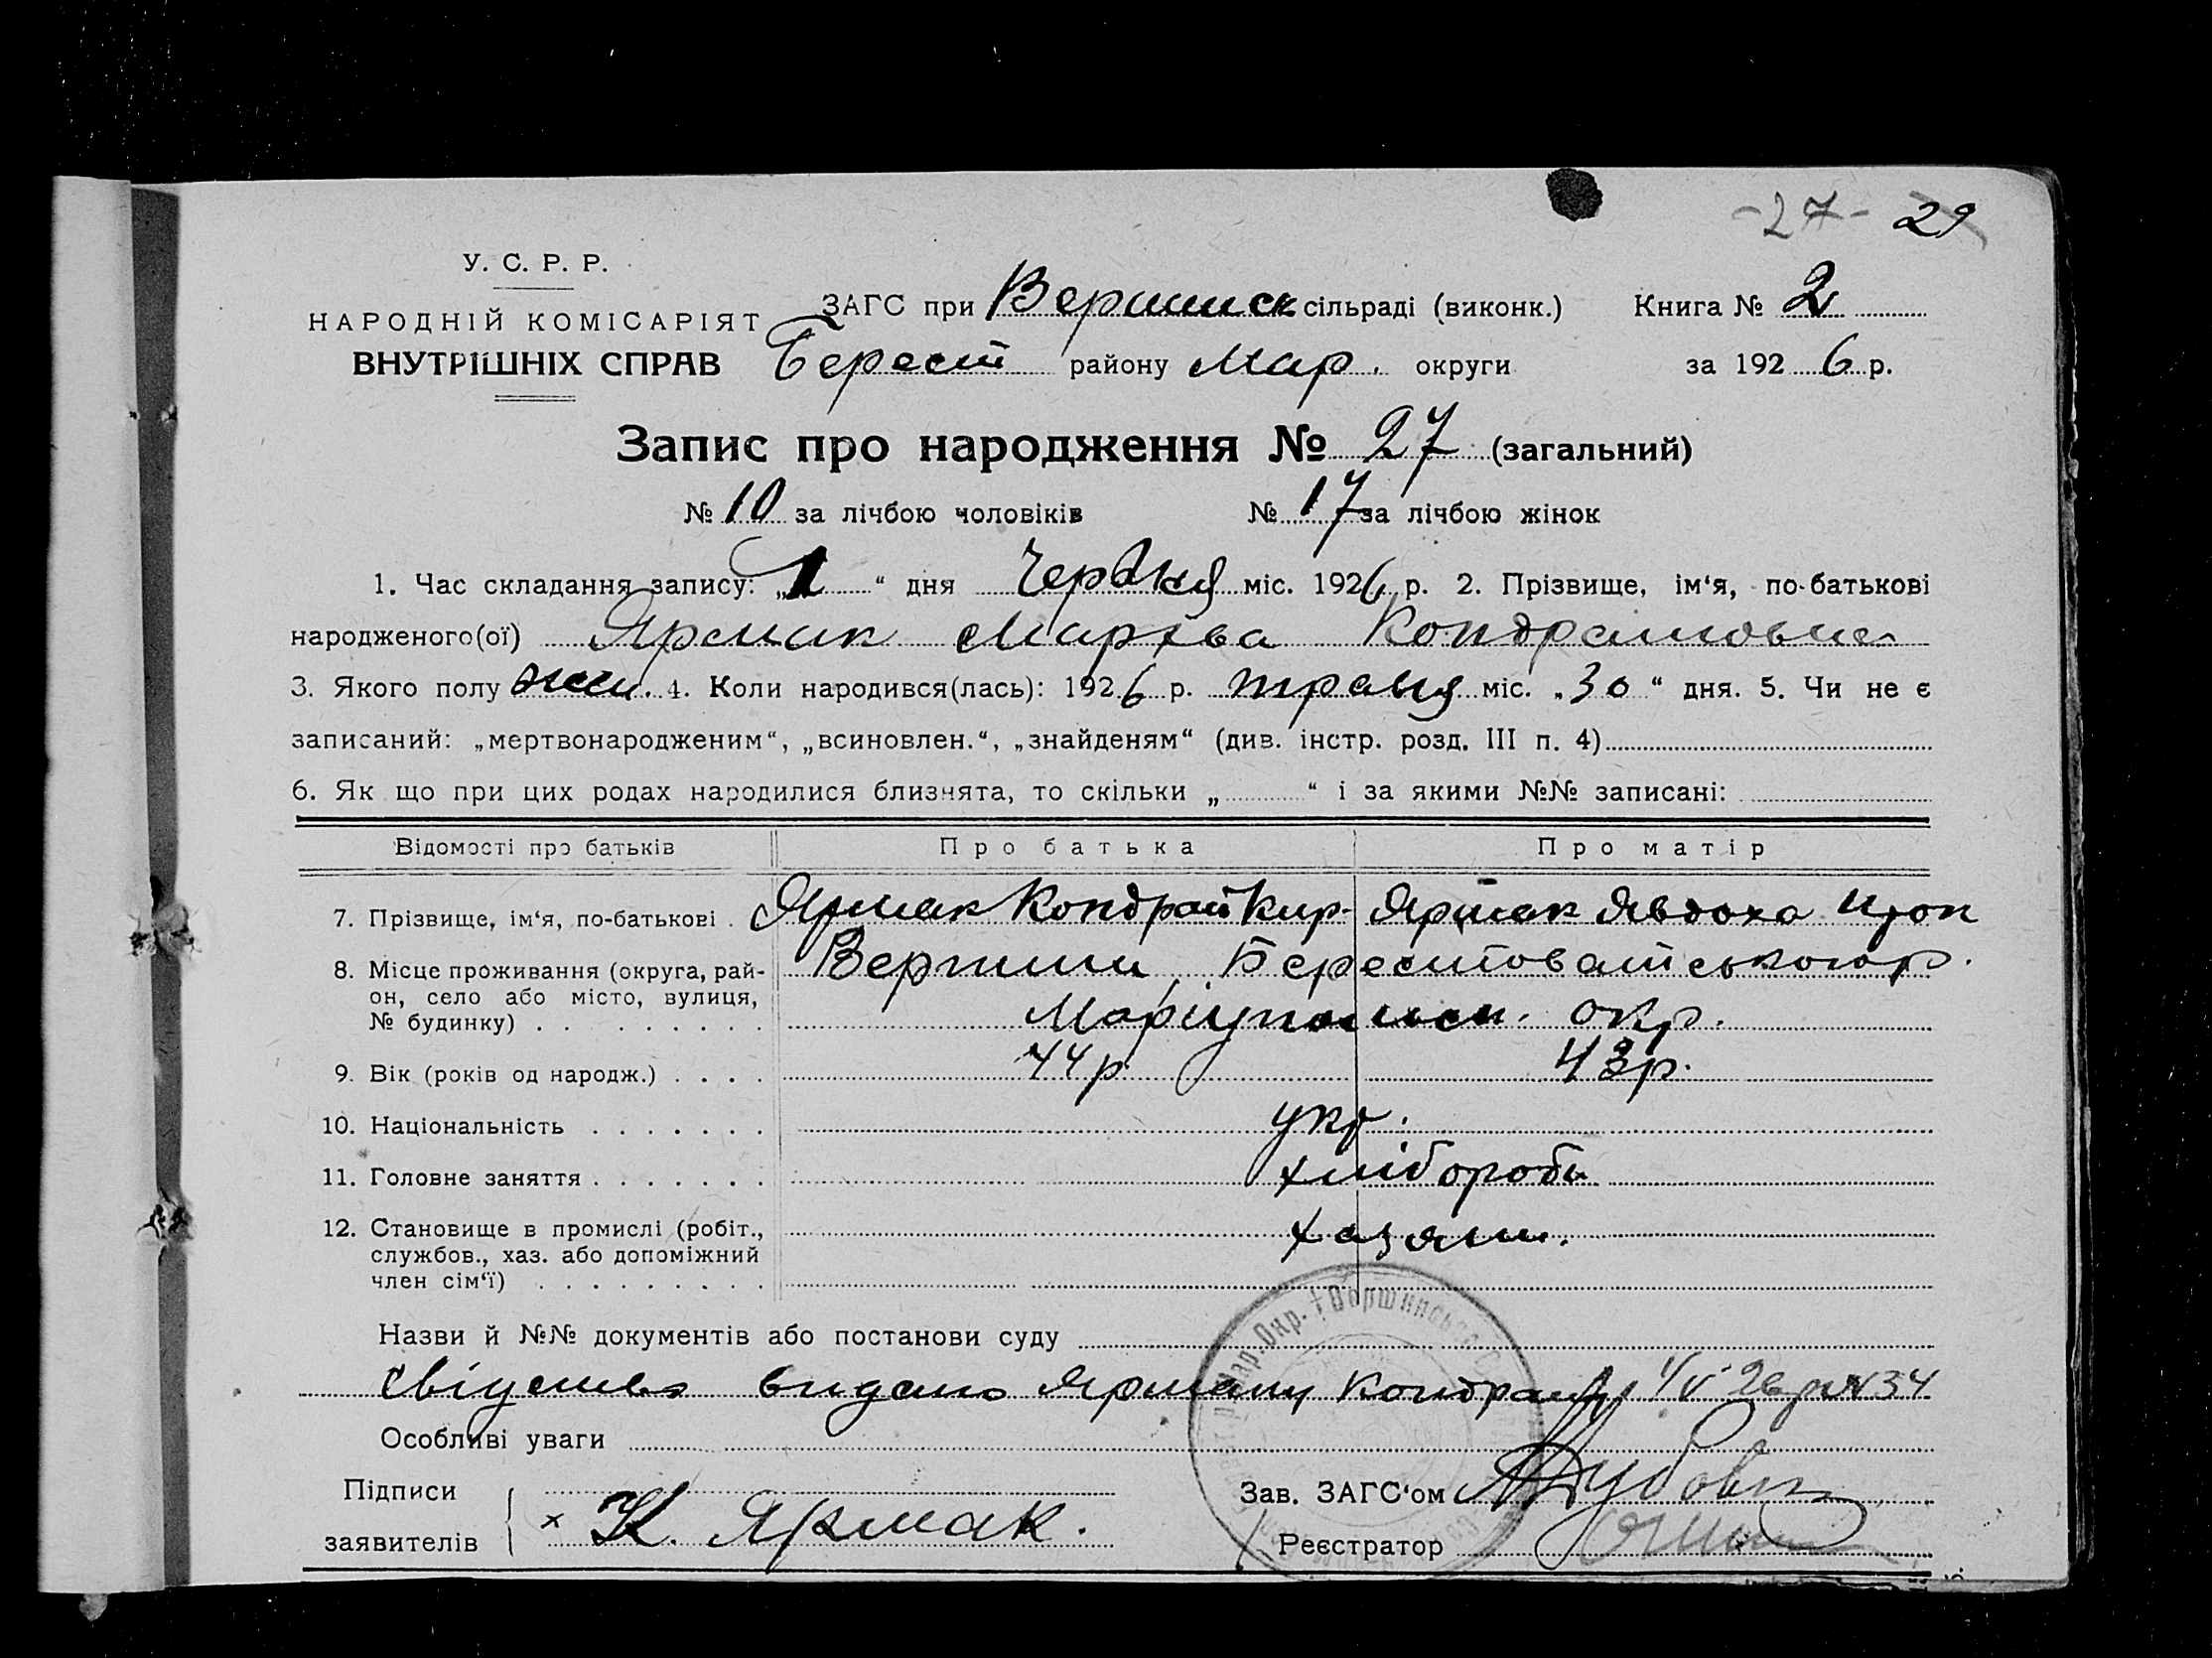 -27- 29
У. С. Р. Р.
НАРОДНІЙ КОМІСАРІЯТ
ВНУТРІШНІХ СПРАВ
ЗАГС при Вершинск сільраді (виконк.) Книга № 2
Берест району Мар. округи за 1926 р.
Запис про народження № 27 (загальний)
№ 10 за лічбою чоловіків № 17 за лічбою жінок
1. Час складання запису: „1“ дня Червня міс. 1926 р. 2. Прізвище, ім‘я, по-батькові
народженого(ої) Ярмак Маріва Кондратовна
3. Якого полу жін. 4. Коли народився(лась): 1926 р. травня міс. „30“ дня. 5. Чи не є
записаний: „мертвонародженим“, „всиновлен.“, „знайденям“ (див. інстр. розд. III п. 4)
6. Як що при цих родах народилися близнята, то скільки „ “ і за якими №№ записані:
Відомості про батьків Про батька Про матір
7. Прізвище, ім‘я, по-батькові . Ярмак Кондрат Кир. Ярмак Явдоха
8. Місце проживання (округа, рай-
он, село або місто, вулиця,
№ будинку) . . . . . . . . .
Вершини, Берестоватського р.
Маріупольск. окр.
9. Вік (років од народж.) . . . . 44 р 43 р.
10. Національність . . . . . . . укр.
11. Головне заняття . . . . . . . хлібороби
12. Становище в промислі (робіт.,
службов., хаз. або допоміжний
член сім‘ї) . . . . . . . . .
хазяїн.
Назви й №№ документів або постанови суду
видано Ярмаку Кондрату 26 р № 34
Особливі уваги
Підписи
заявителів
× К. Ярмак.
Зав. ЗАГС‘ом
Реєстратор
Мар. Окр.